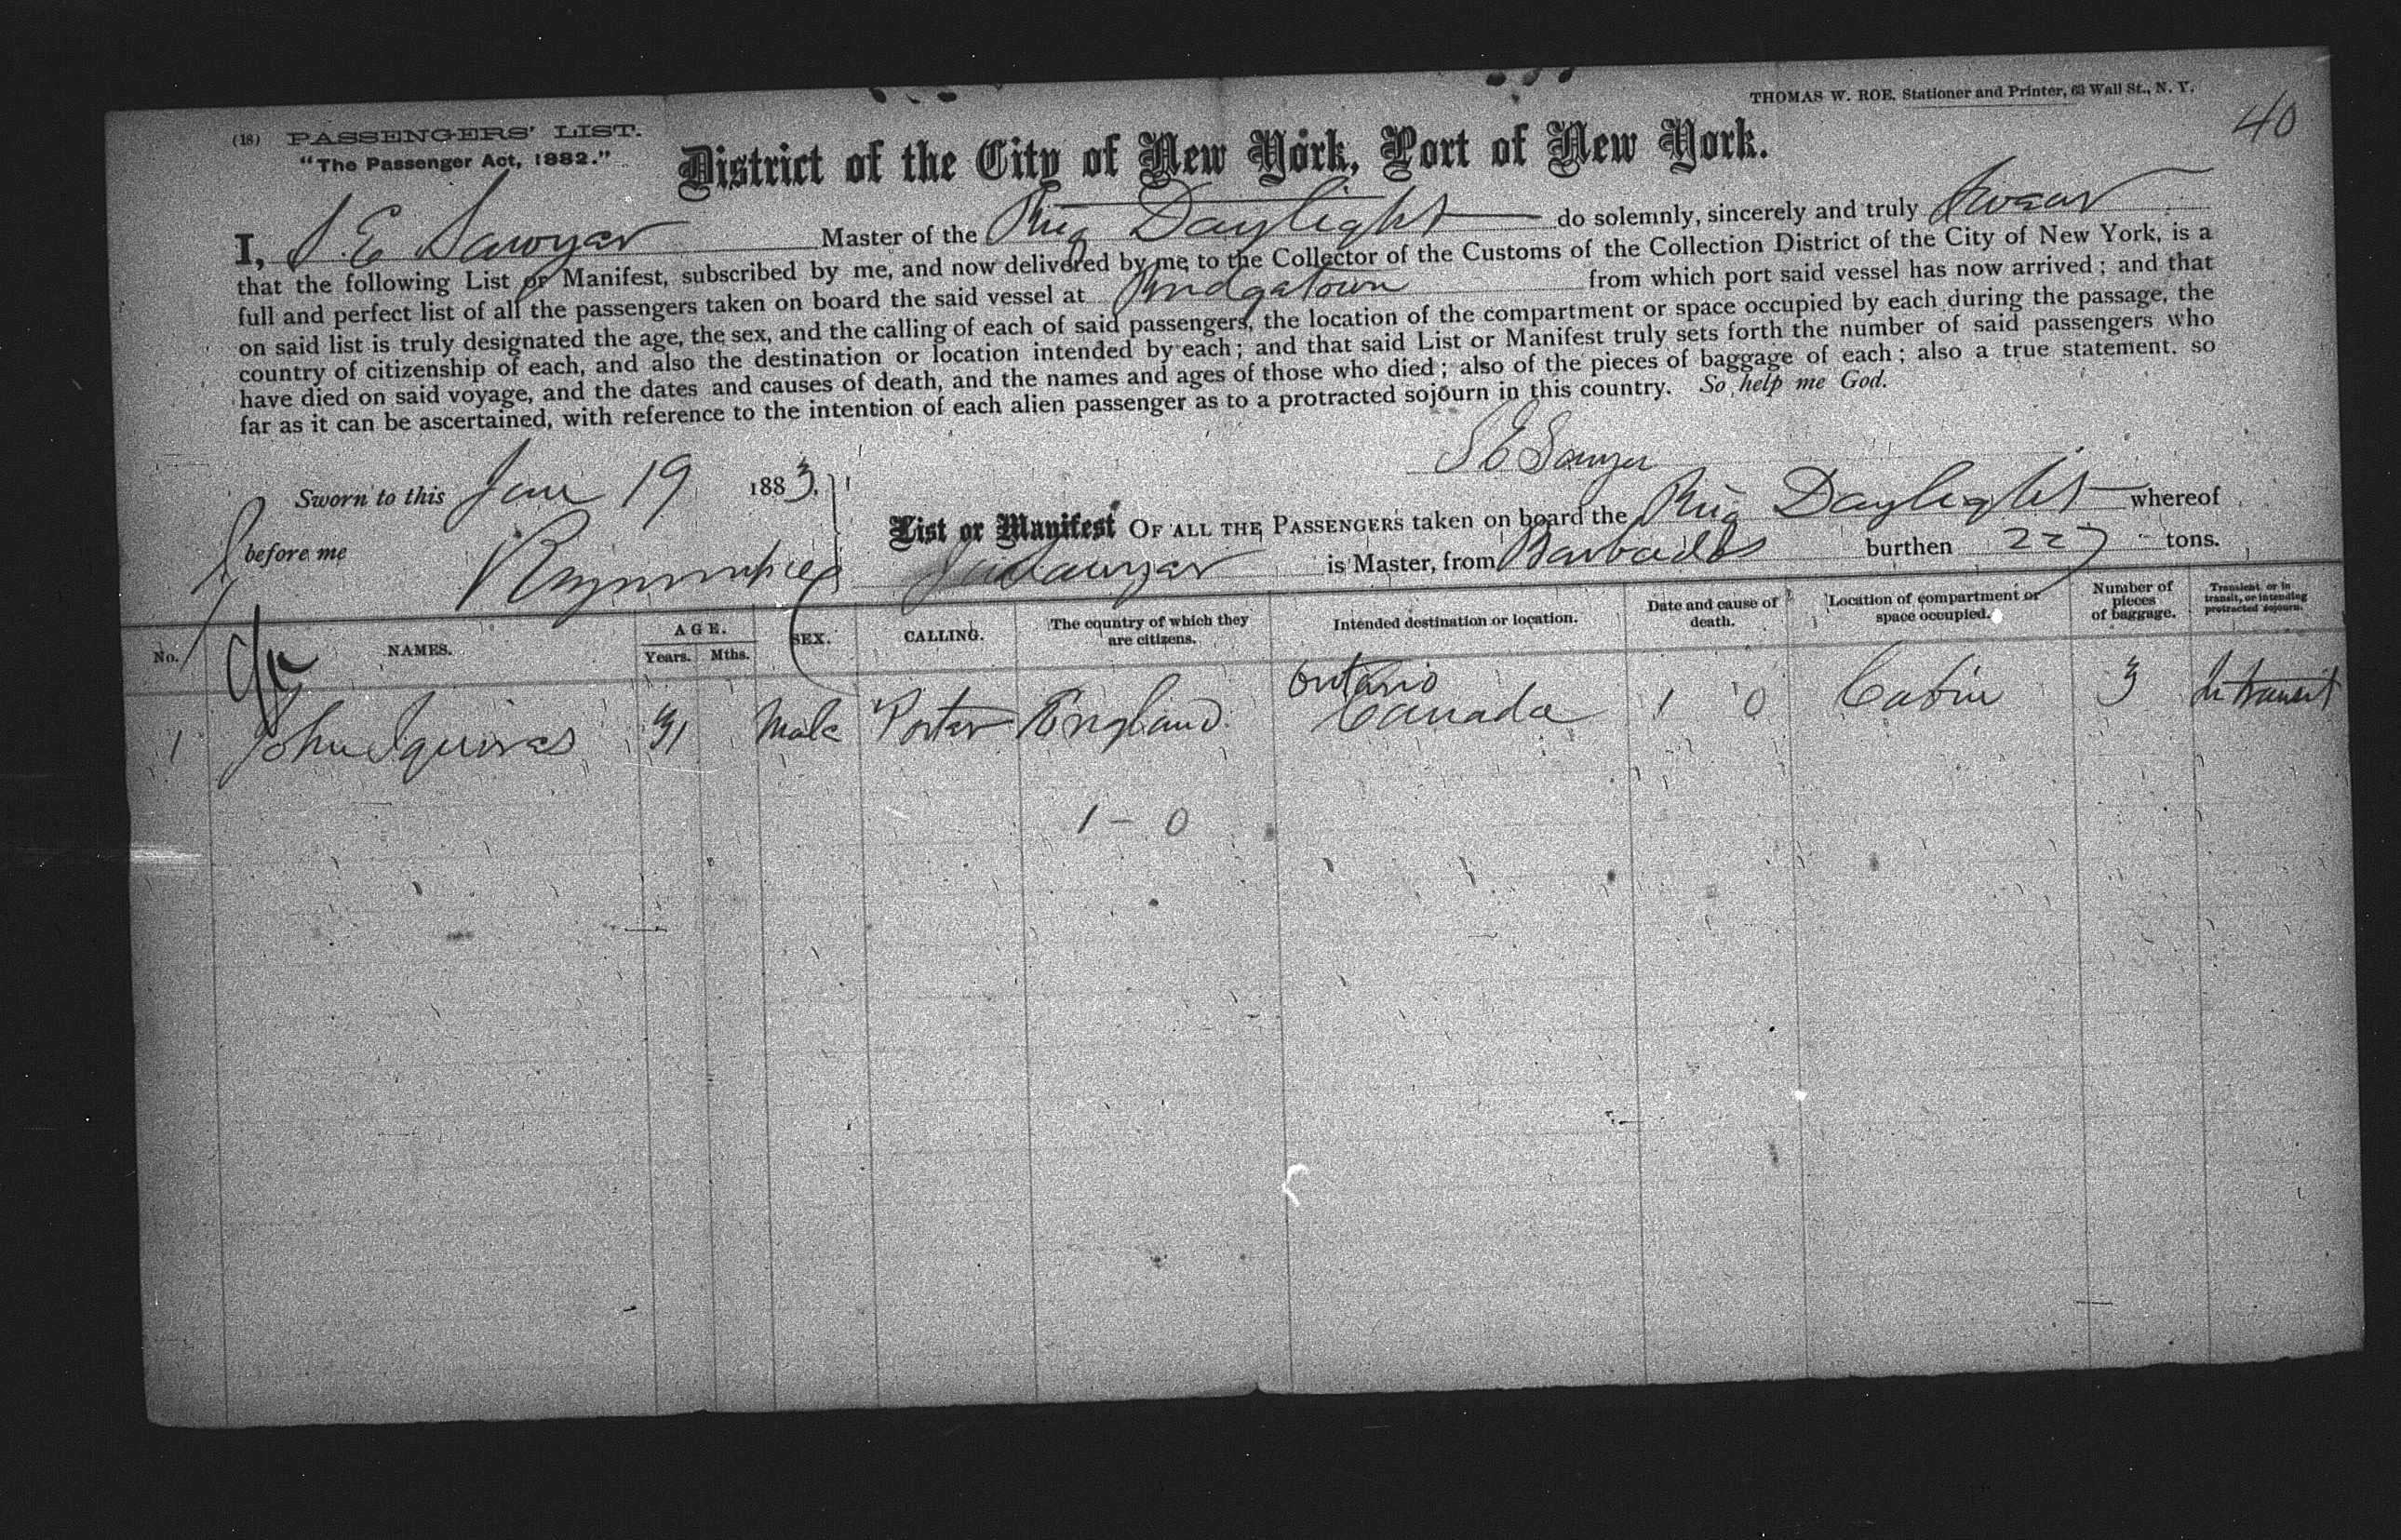 THOMAS W. ROE, Stationer and Printer, 63 Wall St., N. Y.
40
(18) PASSENGERS' LIST.
"The Passenger Act, 1882."
District of the City of New York, Port of New York.
I, S. E. Sawyer Master of the Brig Daylight do solemnly, sincerely and truly Swear
that the following List or Manifest, subscribed by me, and now delivered by me to the Collector of the Customs of the Collection District of the City of New York, is a
full and perfect list of all the passengers taken on board the said vessel at Bridgetown from which port said vessel has now arrived; and that
on said list is truly designated the age, the sex, and the calling of each of said passengers, the location of the compartment or space occupied by each during the passage, the
country of citizenship of each, and also the destination or location intended by each; and that said List or Manifest truly sets forth the number of said passengers who
have died on said voyage, and the dates and causes of death, and the names and ages of those who died; also of the pieces of baggage of each; also a true statement, so
far as it can be ascertained, with reference to the intention of each alien passenger as to a protracted sojourn in this country. So help me God.
S E Sawyer
Sworn to this 19 1883.
before me
List or Manifest OF ALL THE PASSENGERS taken on board the Brig Daylight whereof
Sawyer is Master, from Barbados burthen 227 tons.
No. NAMES. AGE. Years. Mths. SEX. CALLING. The country of which they are citizens. Intended destination or location. Date and cause of death. Location of compartment or space occupied. Number of pieces of baggage. Transient, or in transit, or intending protracted sojourn.
1 John Squires 31 Male Porter England Ontario Canada 1 0 Cabin 3 In transit
1 - 0